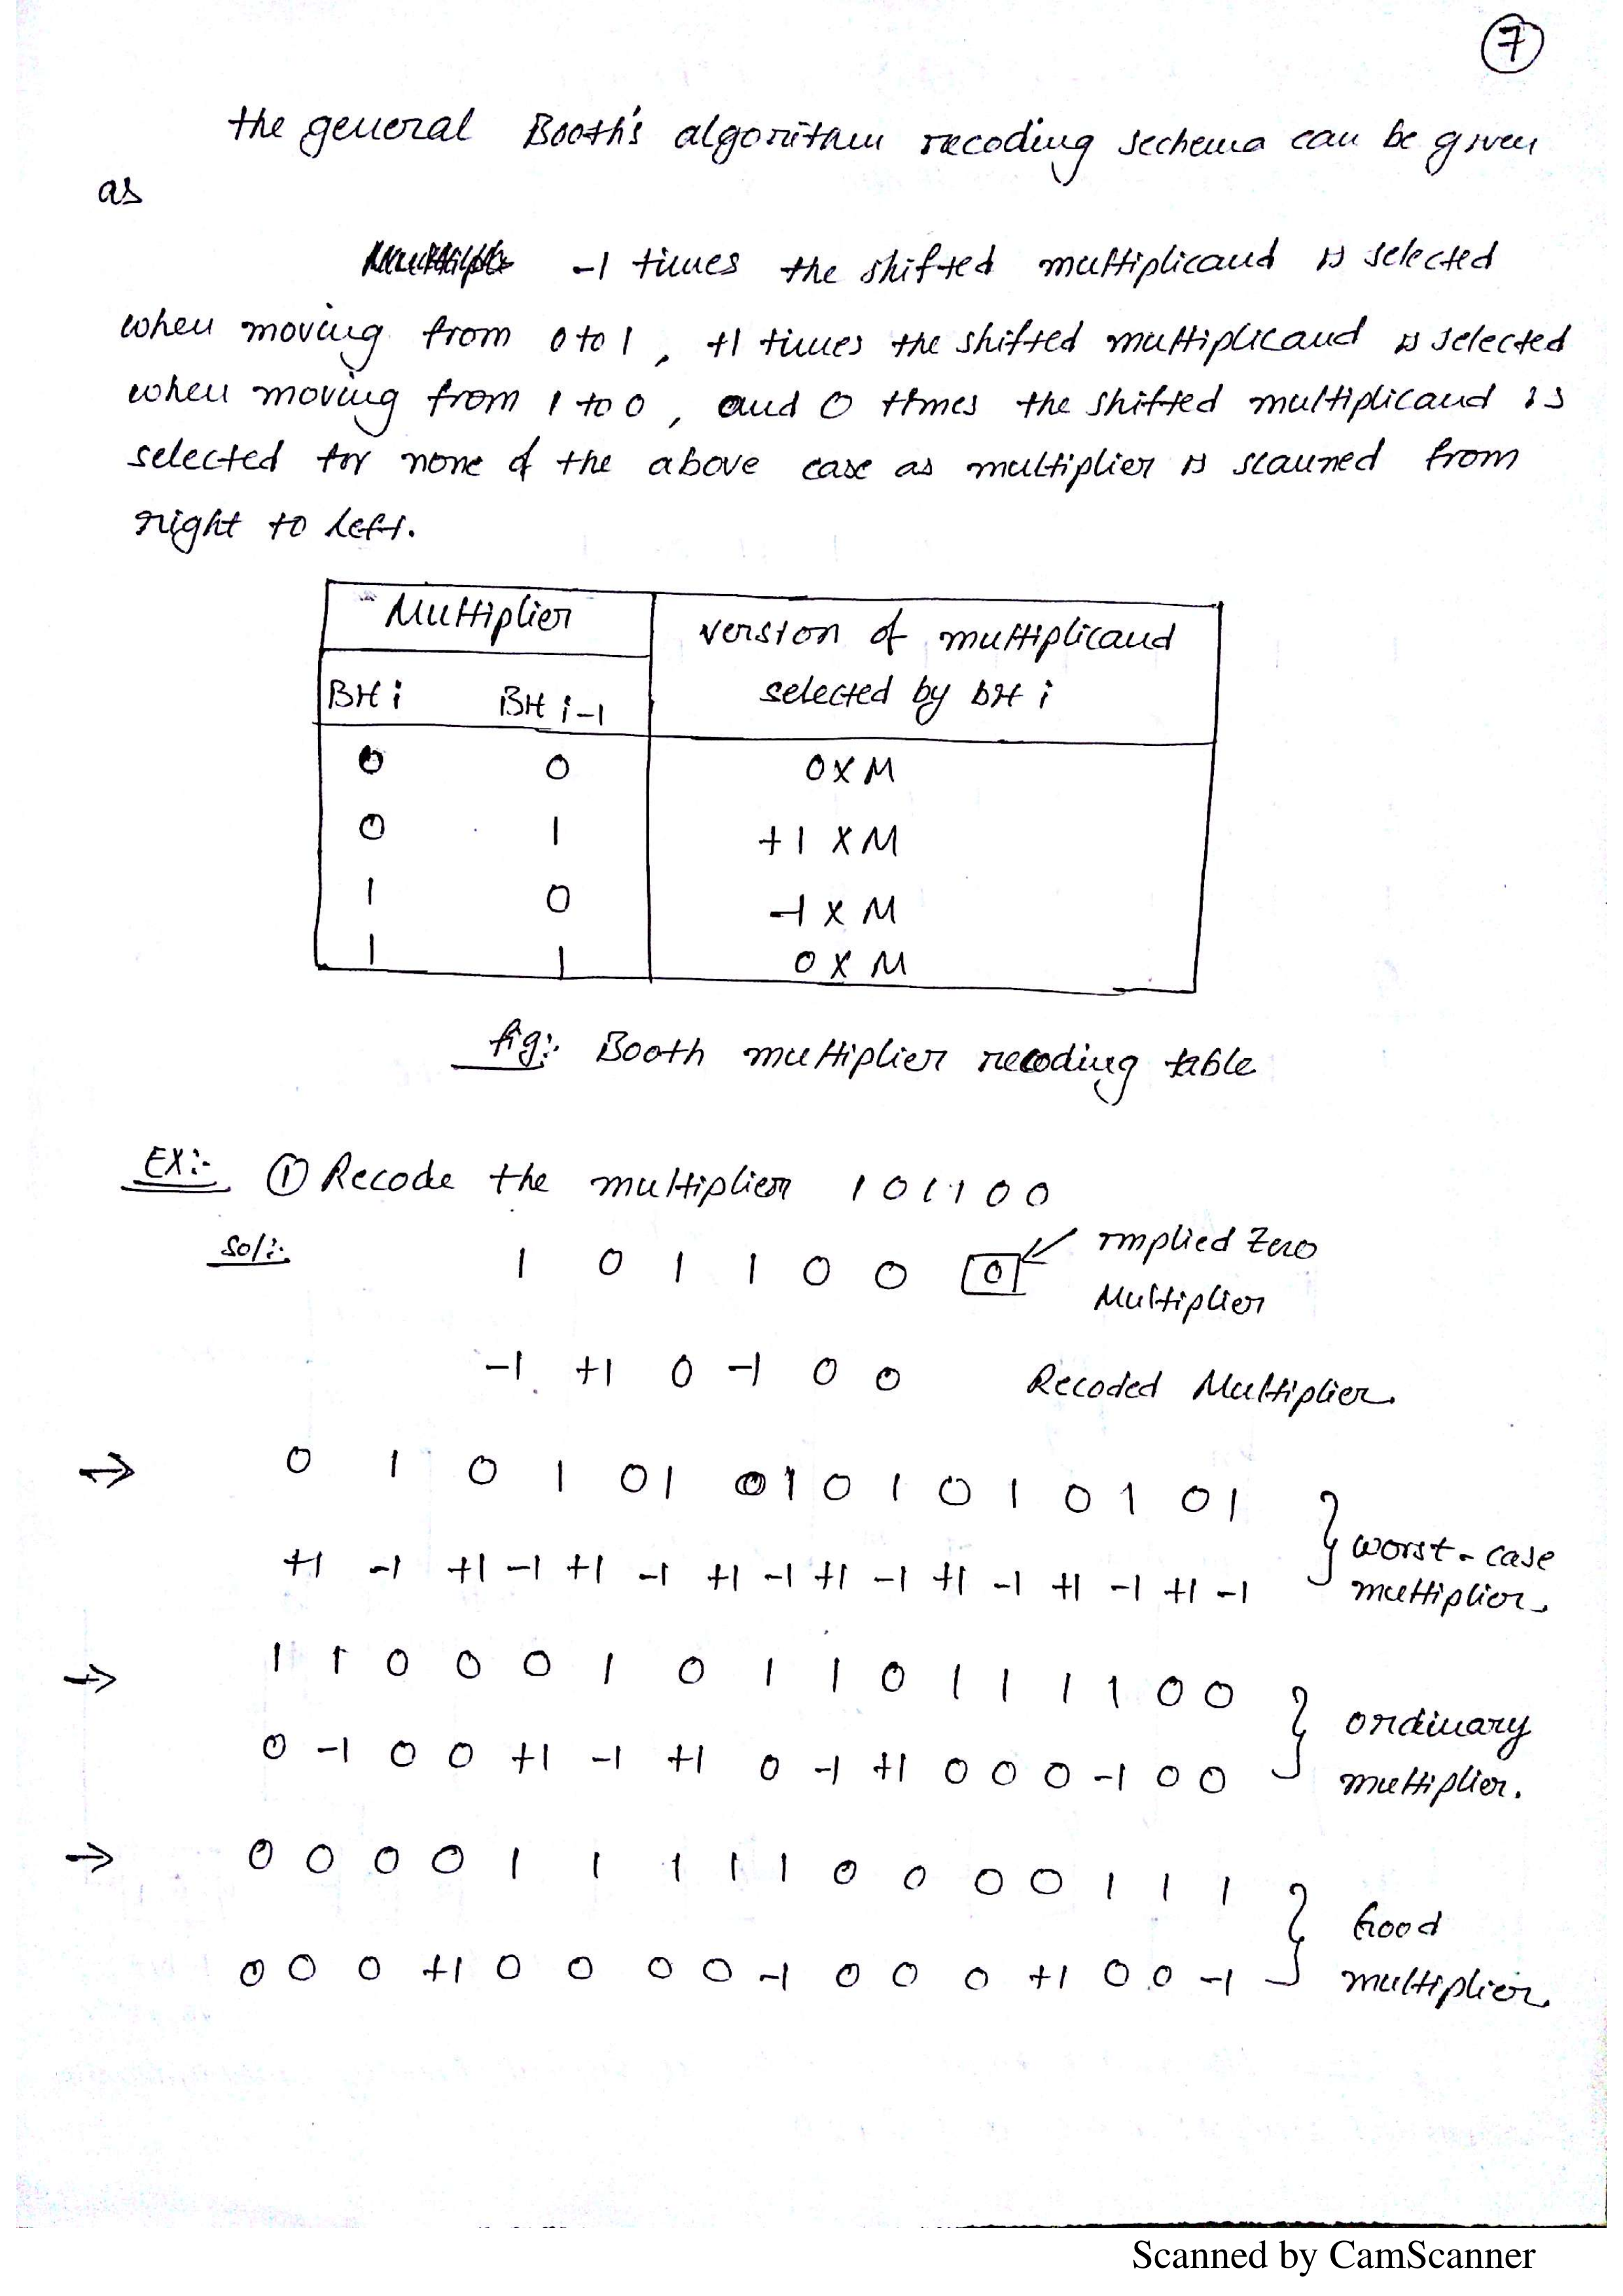 7
the general Booth's algorithm recoding sechema can be given
as
-1 times the shifted multiplicand is selected
when moving from 0 to 1, +1 times the shifted multiplicand is selected
when moving from 1 to 0, and 0 times the shifted multiplicand is
selected for none of the above case as multiplier is scanned from
right to left.
Multiplier version of multiplicand
Bit i Bit i-1 selected by bit i
0 0 0 X M
0 1 +1 X M
1 0 -1 X M
1 1 0 X M
fig:- Booth multiplier recoding table
EX:- ① Recode the multiplier 101100
Sol:- 1 0 1 1 0 0 0 Implied Zero
Multiplier
-1 +1 0 -1 0 0 Recoded Multiplier.
→ 0 1 0 1 0 1 0 1 0 1 0 1 0 1 0 1
+1 -1 +1 -1 +1 -1 +1 -1 +1 -1 +1 -1 +1 -1 +1 -1 } worst-case
multiplier.
→ 1 1 0 0 0 1 0 1 1 0 1 1 1 1 0 0
0 -1 0 0 +1 -1 +1 0 -1 +1 0 0 0 -1 0 0 } ordinary
multiplier.
→ 0 0 0 0 1 1 1 1 1 0 0 0 0 1 1 1
0 0 0 +1 0 0 0 0 -1 0 0 0 +1 0 0 -1 } Good
multiplier.
Scanned by CamScanner